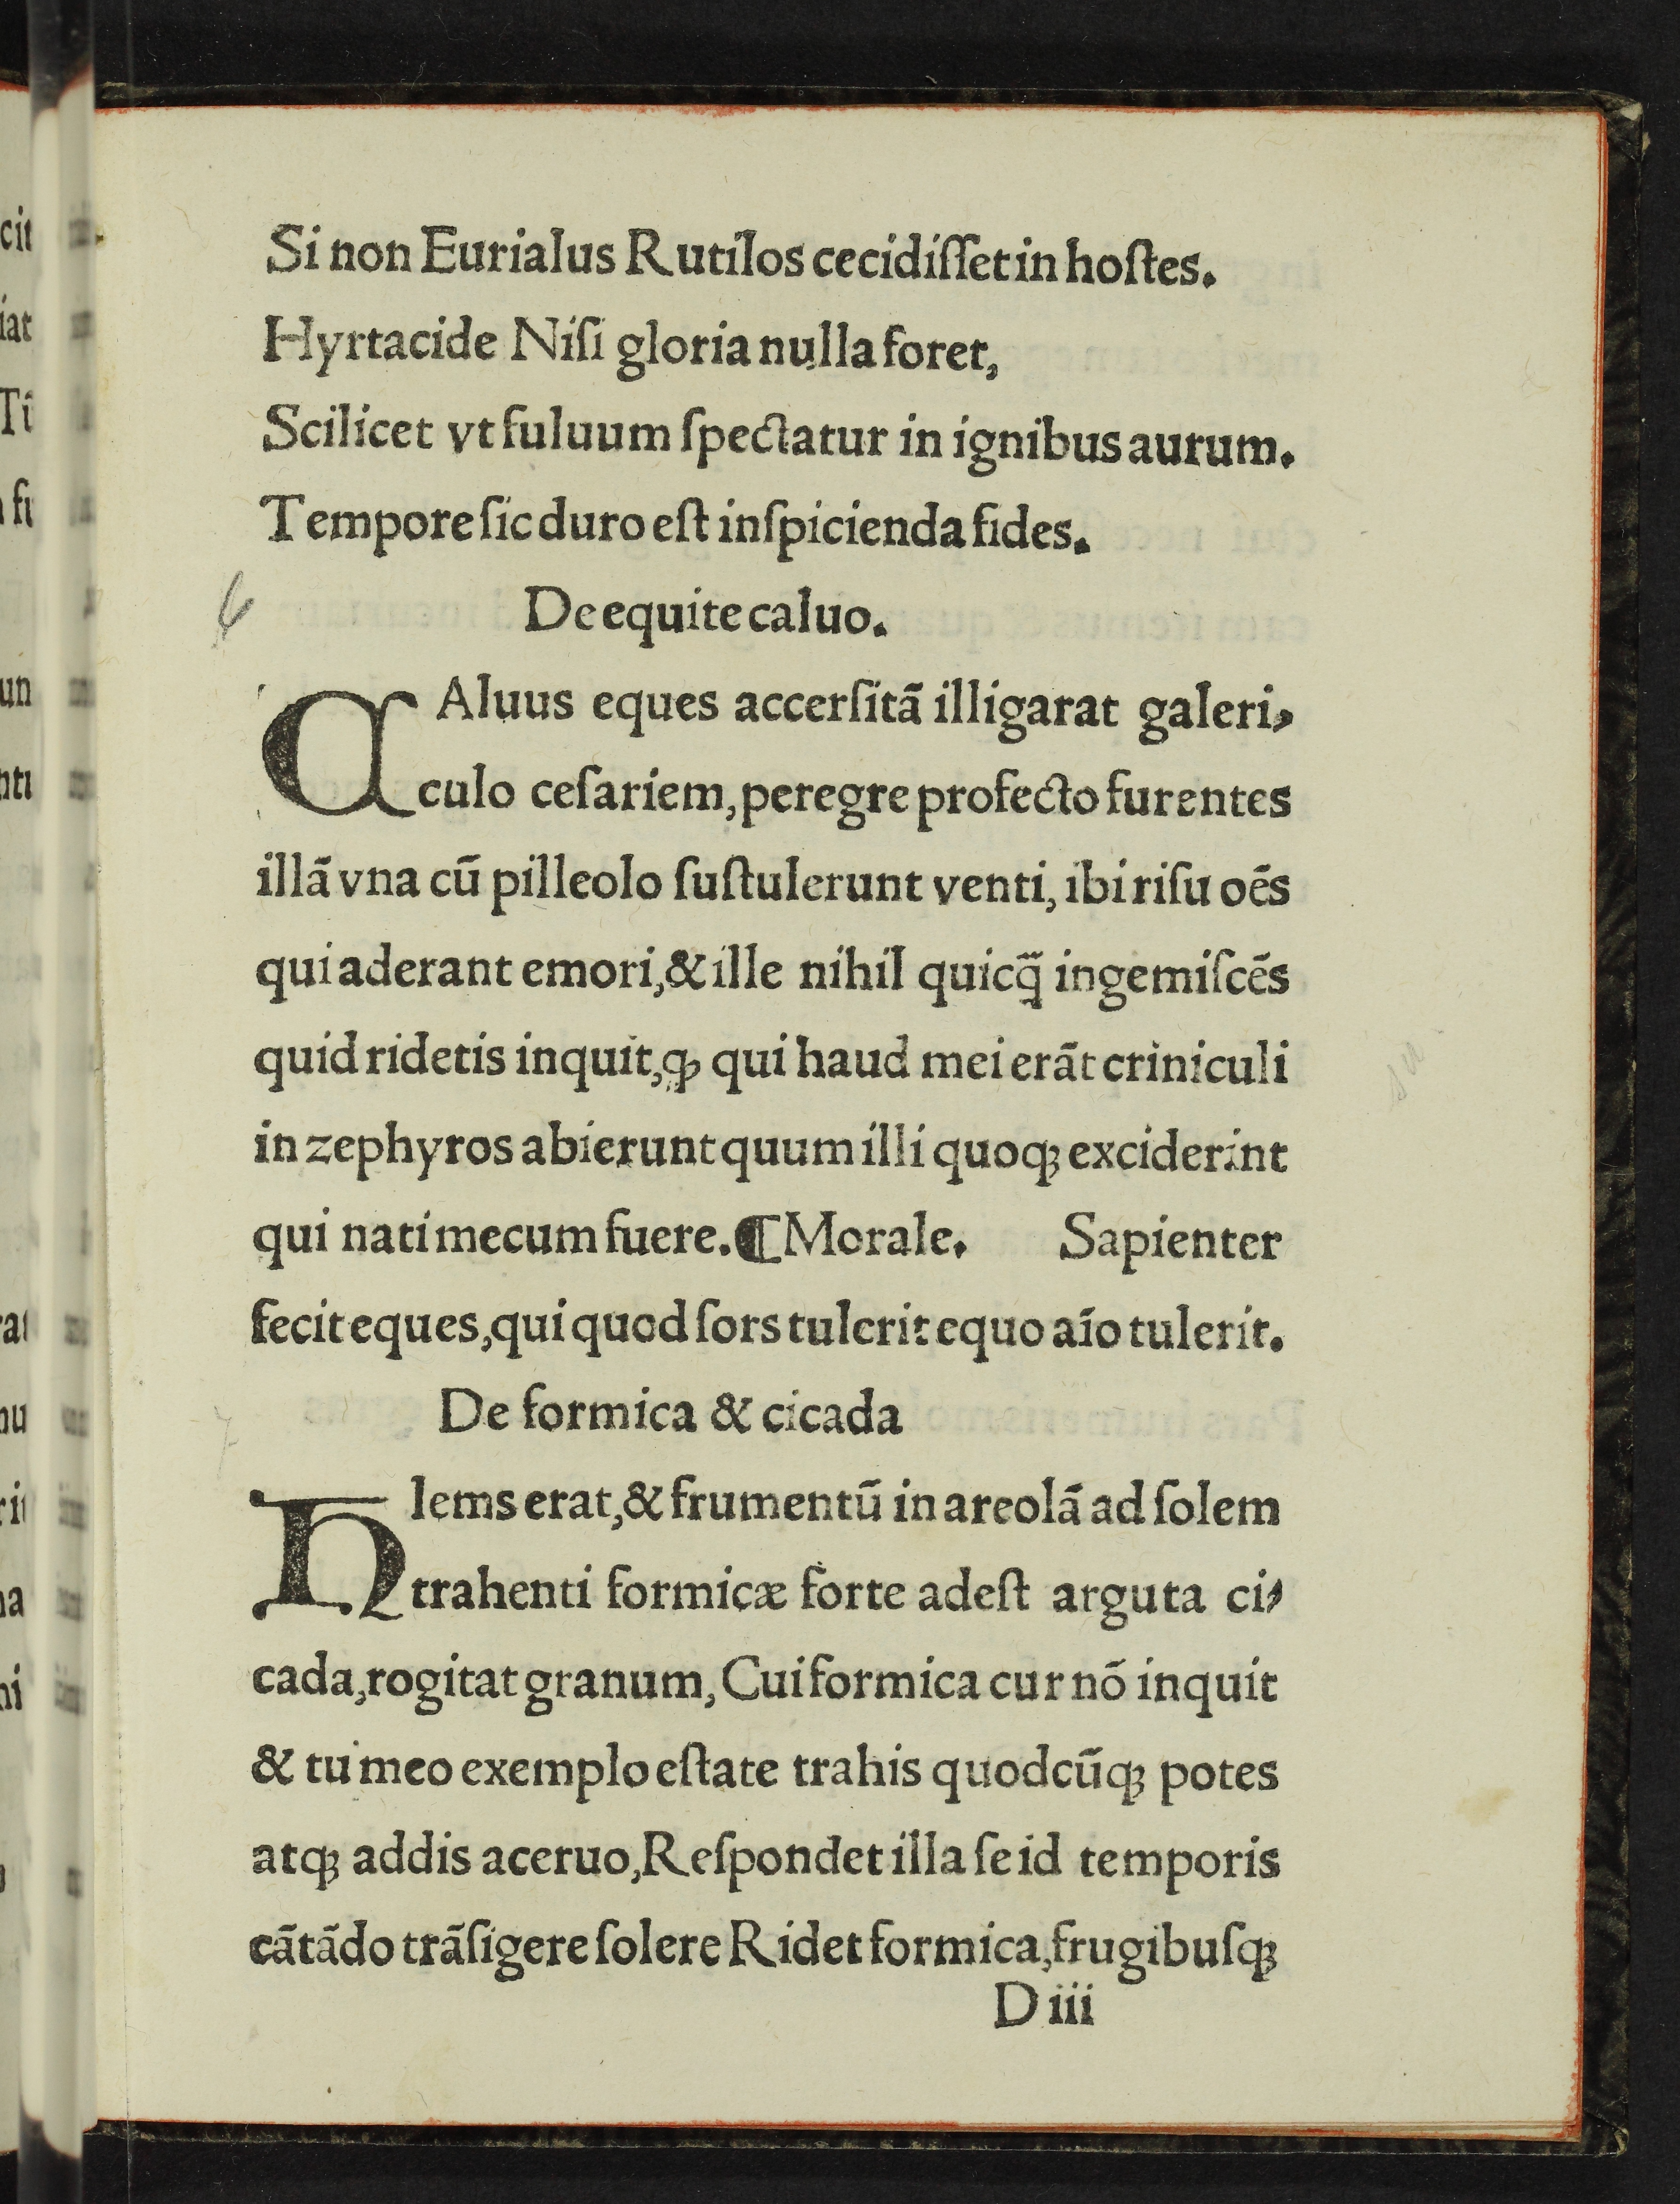 Si non Eurialus Rutilos cecidiſſet in hoſtes.
Hyrtacide Niſi gloria nulla foret,
Scilicet vt fuluum ſpectatur in ignibus aurum.
Tempore ſic duro eſt inſpicienda fides.
De equite caluo.
CAluus eques accerſitã illigarat galeri⸗
culo ceſariem, peregre profecto furentes
illã vna cũ pilleolo ſuſtulerunt venti, ibi riſu oẽs
qui aderant emori, & ille nihil quicꝗ̃ ingemiſcẽs
quid ridetis inquit, ꝙ qui haud mei erãt criniculi
in zephyros abierunt quum illi quoqꝫ exciderint
qui nati mecum fuere. ¶ Morale. Sapienter
fecit eques, qui quod ſors tulerit equo aĩo tulerit.
De formica & cicada
HIems erat, & frumentũ in areolã ad ſolem
trahenti formicæ forte adeſt arguta ci⸗
cada, rogitat granum, Cui formica cur nõ inquit
& tu meo exemplo eſtate trahis quodcũqꝫ potes
atqꝫ addis aceruo, Reſpondet illa ſe id temporis
cãtãdo trãſigere ſolere Ridet formica, frugibuſqꝫ
D iii